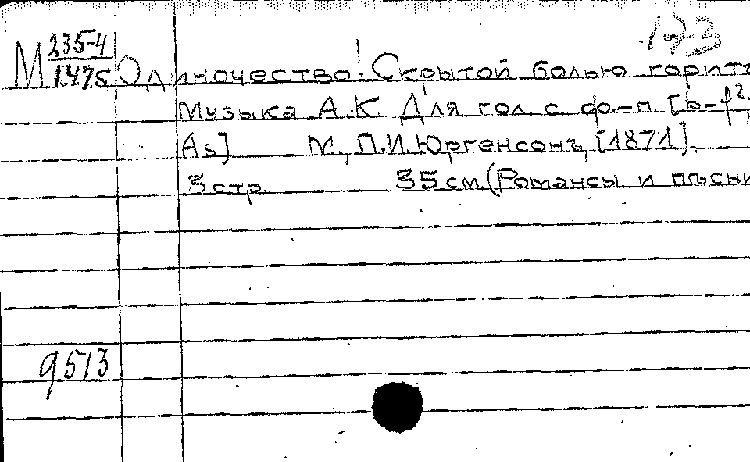 173
М 235-4/1475 Одиночество! Скрытой болью горитъ
Музыка А.К Для гол. с ф.-п. [b-f²,
As] М., П.И.Юргенсонъ, [1871].
3 стр 35 см (Романсы и пѣсни
9513